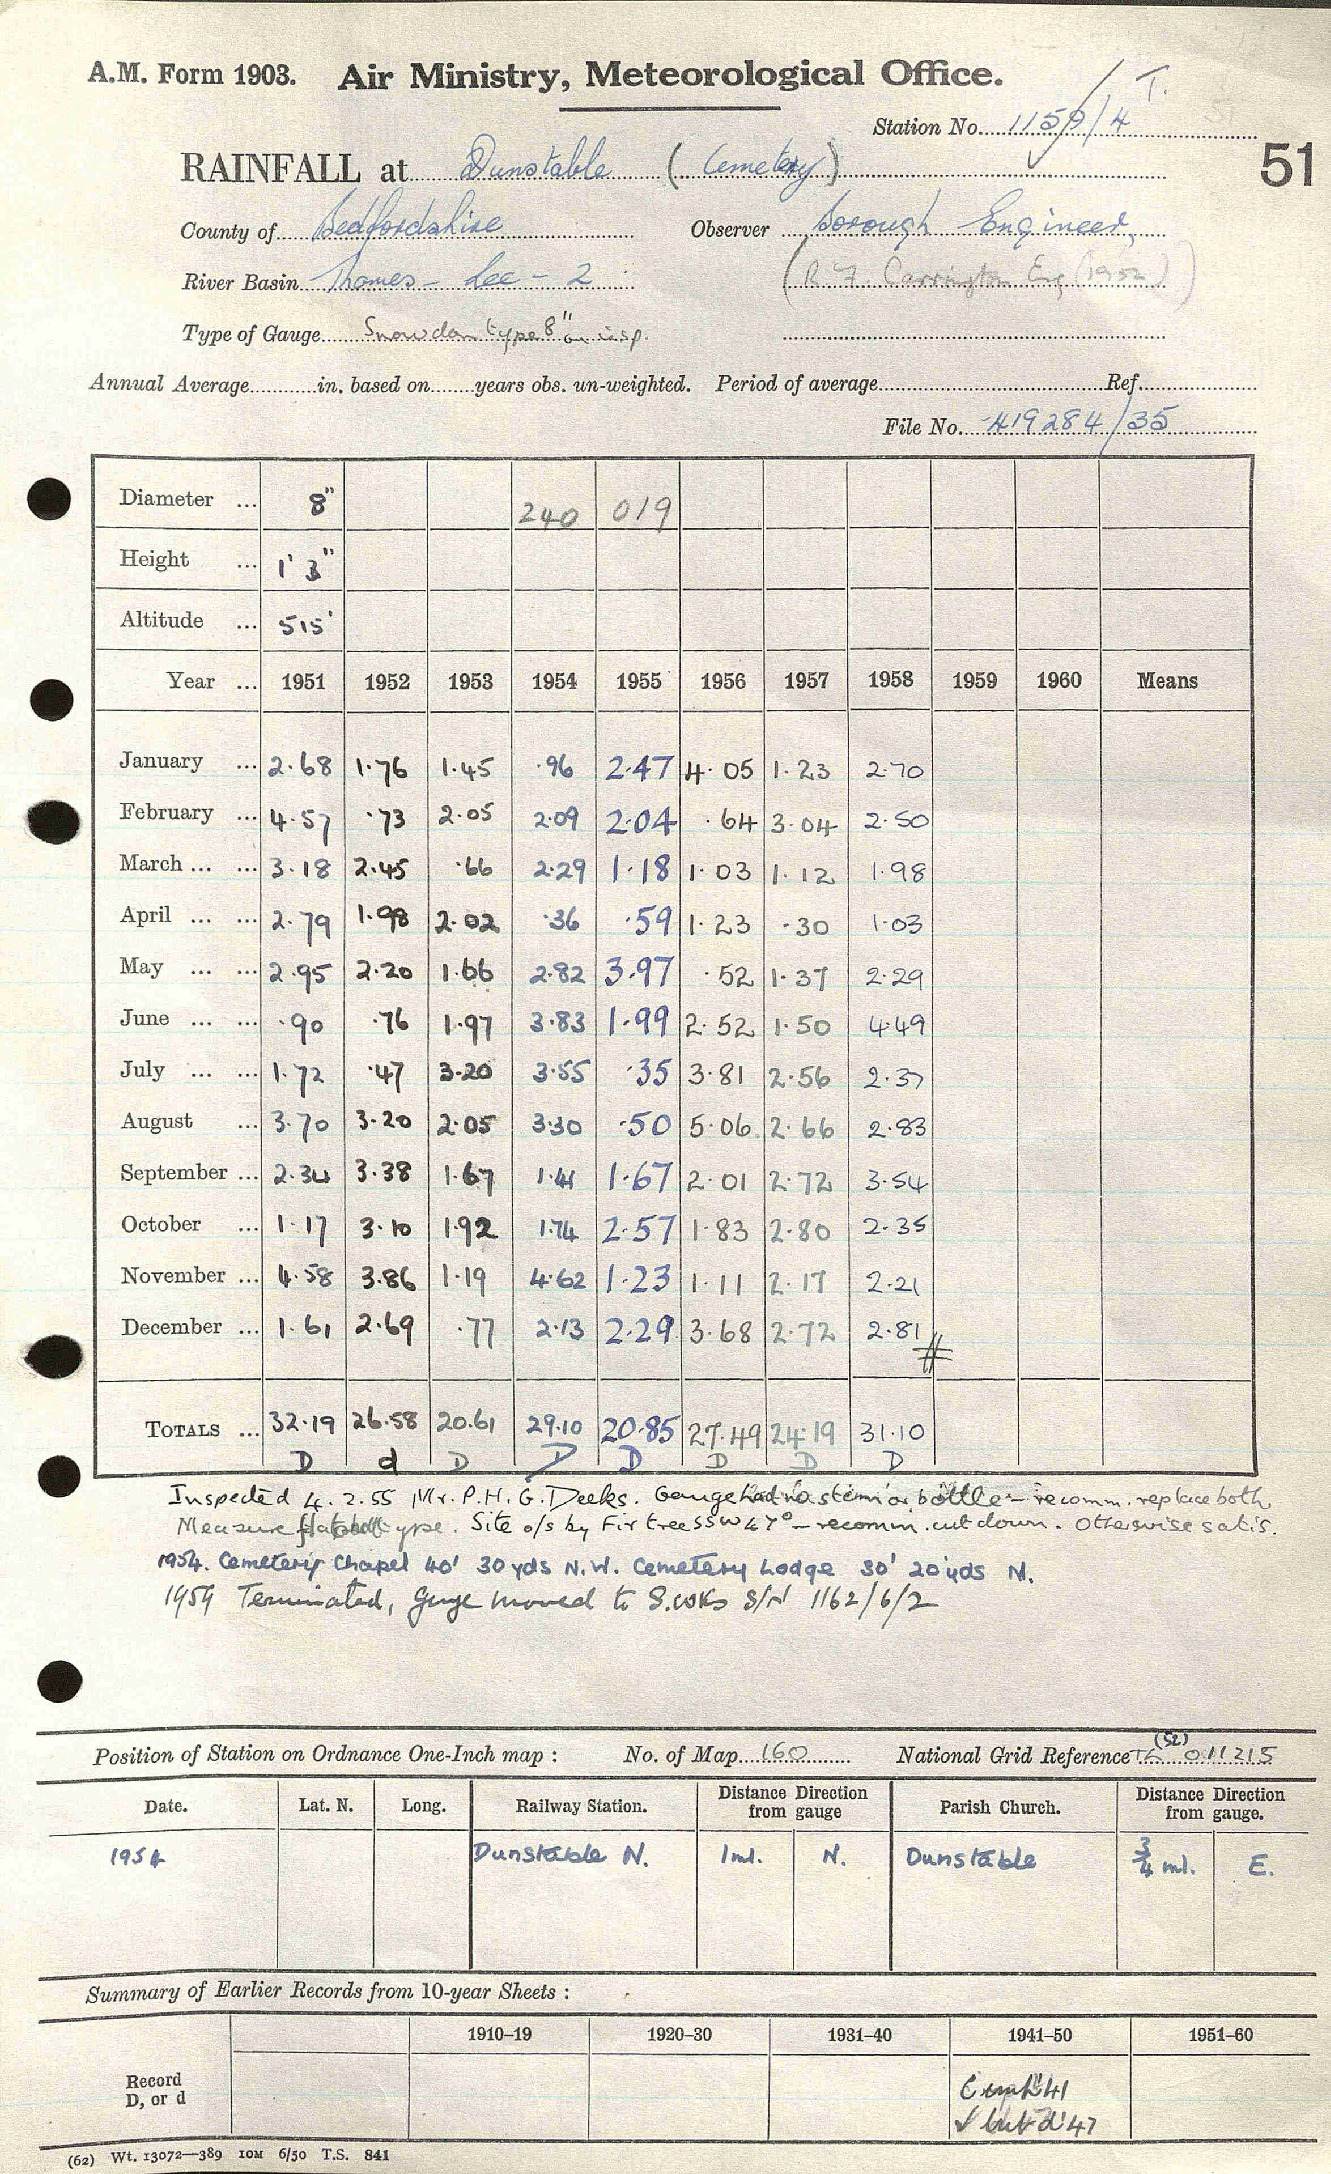 A.M. Form 1903. Air Ministry, Meteorological Office.
T.
Station No. 1159/4
51
RAINFALL at Dunstable (Cemetery)
County of Bedfordshire Observer Borough Engineer,
River Basin Thames - Lee - 2 (R. F. Carrington Eng (1952))
Type of Gauge Snowdon type 8" on insp.
Annual Average in. based on years obs. un-weighted. Period of average Ref.
File No. 419284/35
Diameter ... 8" 240 019
Height ... 1' 3"
Altitude ... 515'
Year ... 1951 1952 1953 1954 1955 1956 1957 1958 1959 1960 Means
January ... 2.68 1.76 1.45 .96 2.47 4.05 1.23 2.70
February ... 4.57 .73 2.05 2.09 2.04 .64 3.04 2.50
March ... ... 3.18 2.45 .66 2.29 1.18 1.03 1.12 1.98
April ... ... 2.79 1.98 2.02 .36 .59 1.23 .30 1.03
May ... ... 2.95 2.20 1.66 2.82 3.97 .52 1.37 2.29
June ... ... .90 .76 1.97 3.83 1.99 2.52 1.50 4.49
July ... ... 1.72 .47 3.20 3.55 .35 3.81 2.56 2.37
August ... 3.70 3.20 2.05 3.30 .50 5.06 2.66 2.83
September ... 2.34 3.38 1.67 1.41 1.67 2.01 2.72 3.54
October ... 1.17 3.10 1.92 1.74 2.57 1.83 2.80 2.35
November ... 4.58 3.86 1.19 4.62 1.23 1.11 2.17 2.21
December ... 1.61 2.69 .77 2.13 2.29 3.68 2.72 2.81
TOTALS ... 32.19 26.58 20.61 29.10 20.85 27.49 24.19 31.10
D d D D D D D D
Inspected 4.2.55 Mr. P.H.G. Deeks. Gauge had no stem or bottle - recomm. replace both.
Measure flat type. Site o/s by Fir tree SSW 47° - recomm. cut down. Otherwise satis.
1954. Cemetery Chapel 40' 30 yds N.W. Cemetery Lodge 30' 20 yds N.
1959 Terminated, Gauge moved to S.wks S/N 1162/6/2
Position of Station on Ordnance One-Inch map : No. of Map 160 National Grid Reference TL (52) 011215
Date. Lat. N. Long. Railway Station. Distance from Direction gauge Parish Church. Distance from Direction gauge.
1954 Dunstable N. 1 ml. N. Dunstable 3/4 ml. E.
Summary of Earlier Records from 10-year Sheets :
1910–19 1920–30 1931–40 1941–50 1951–60
Record
D, or d
'41
but d '47
(62) Wt. 13072—389 10M 6/50 T.S. 841